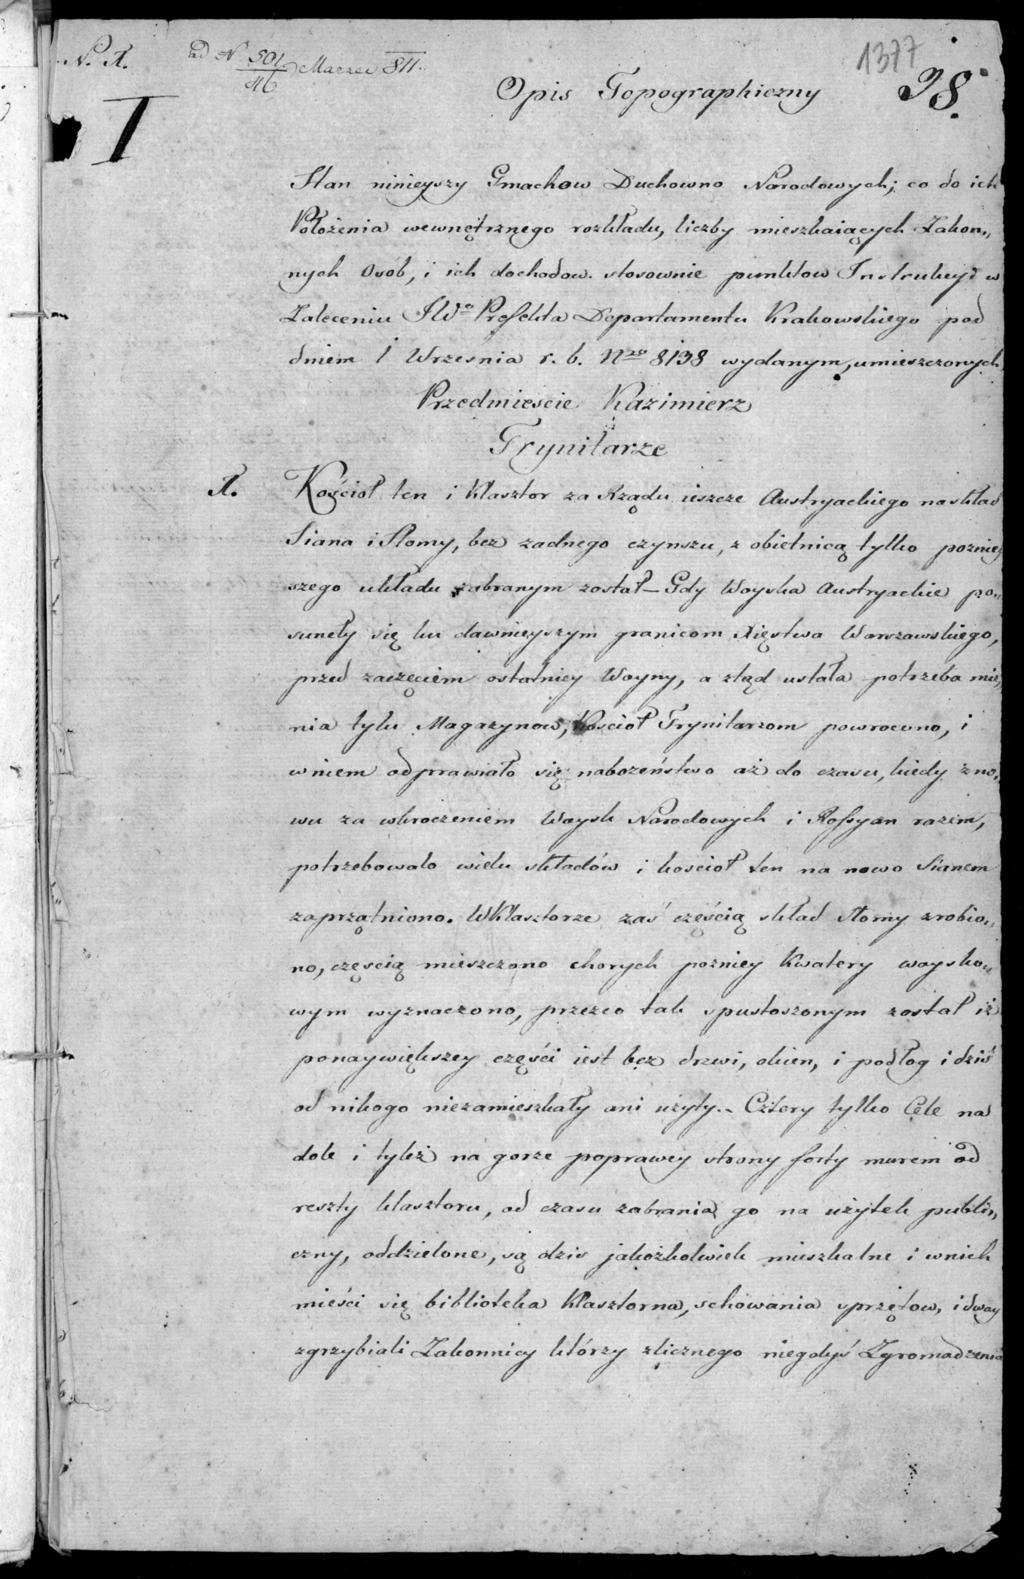 N. I.
ad N 501/46 Marzec 811.
1377
I
Opis Topographiczny
98.
Stan ninieyszy Gmachow Duchowno Narodowych; co do ich
Położenia wewnętrznego rozkładu, liczby mieszkaiących Zakon„
nych Osób, i ich dochodow. stosownie punktow Instrukcyi w
Zaleceniu JWo Prefekta Departamentu Krakowskiego pod
dniem 1 Wrzesnia r. b. Nro 8138 wydanym, umieszczonych
Przedmieście Kazimierz
Trynitarze
1. Kościoł ten i Klasztor za Rządu ieszcze Austryackiego na skład
Siana i Słomy, bez zadnego czynszu, z obietnicą tylko pozniey
szego układu zabranym został – Gdy Woyska Austryackie po„
suneły się ku dawnieyszym granicom Xięstwa Warszawskiego,
przed zaczęciem ostatniey Woyny, a ztąd ustała potrzeba mie„
nia tylu Magazynow, Kościoł Trynitarzom powrocono, i
w niem odprawiało się nabozeństwo aż do czasu, kiedy zno„
wu za wkroczeniem Woysk Narodowych i Rossyan razem,
potrzebowało wielu składów i kościoł ten na nowo Sianem
zaprzątniono. W Klasztorze zaś częścią skład słomy zrobio„
no, częscią mieszczono chorych pozniey Kwatery woysko„
wym wyznaczono, przezco tak spustoszonym został iż
ponaywiększey części iest bez drzwi, okien, i podłog i dziś
od nikogo niezamieszkały ani użyty. – Cztery tylko Cele na
dole i tyleż na gorze poprawey strony forty murem od
reszty klasztoru, od czasu zabrania go na użytek publi„
czny, oddzielone, są dzis jakożkolwiek mieszkalne i w nich
mieści się biblioteka Klasztorna, schowania sprzętow, i dway
zgrzybiali Zakonnicy którzy zlicznego niegdyś Zgromadzenia